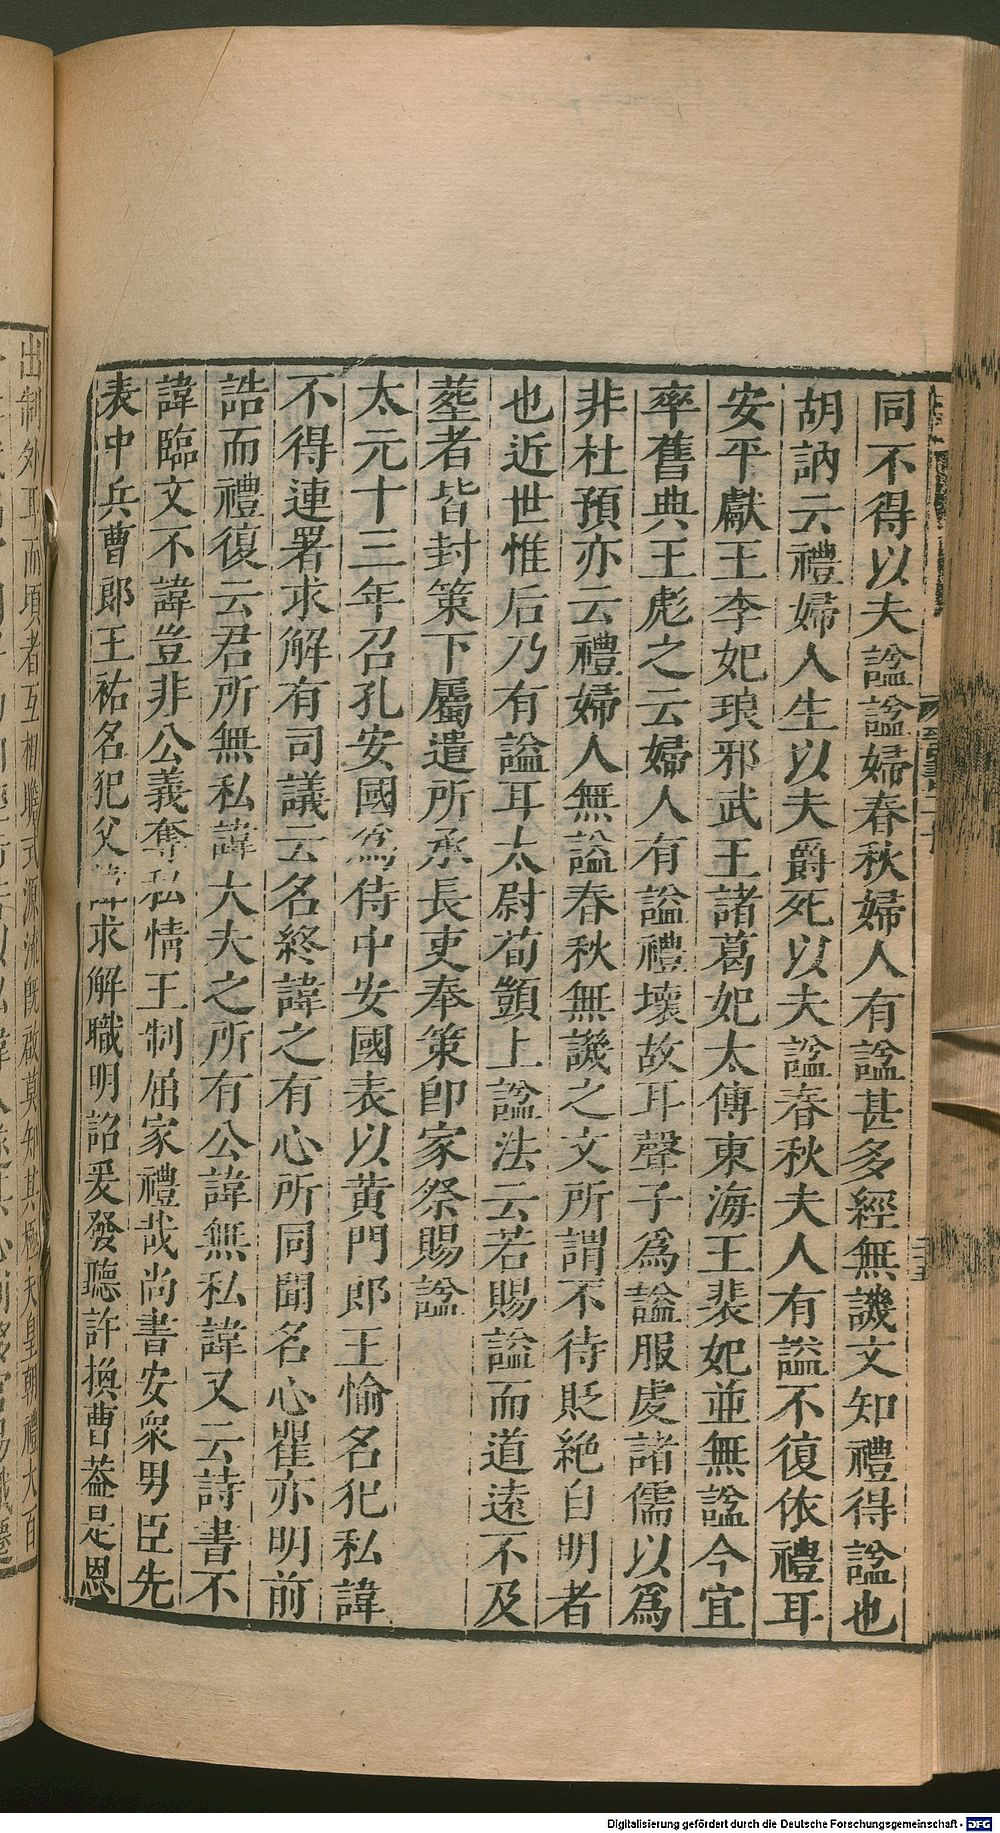 同不得以夫諡諡婦春秋婦人有諡甚多經無譏文知禮得諡也
胡訥云禮婦人生以夫爵死以夫諡春秋夫人有謚不復依禮耳
安平獻王李妃琅邪武王諸葛妃太傅東海王裴妃並無諡今宜
率舊典王彪之云婦人有謚禮壞故耳聲子爲謚服虔諸儒以爲
非杜預亦云禮婦人無謚春秋無譏之文所謂不待貶絶自明者
也近世惟后乃有謚耳太尉荀顗上諡法云若賜謚而道遠不及
塟者皆封策下屬遣所承長吏奉策卽家祭賜諡
太元十三年召孔安國爲侍中安國表以黃門郎王愉名犯私諱
不得連署求解有司議云名終諱之有心所同聞名心瞿亦明前
誥而禮復云君所無私諱大夫之所有公諱無私諱又云詩書不
諱臨文不諱豈非公義奪私情王制屈家禮哉尚書安衆男臣先
表中兵曹郎王祐名犯父諱求解職明詔爰發聽許換曹葢是恩
出制外耳而頃者互相瞻式源流旣啟莫知其極夫皇朝禮大百
Digitalisierung gefördert durch die Deutsche Forschungsgemeinschaft - DFG